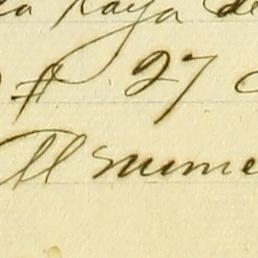 la Raya de
# 27
El nume